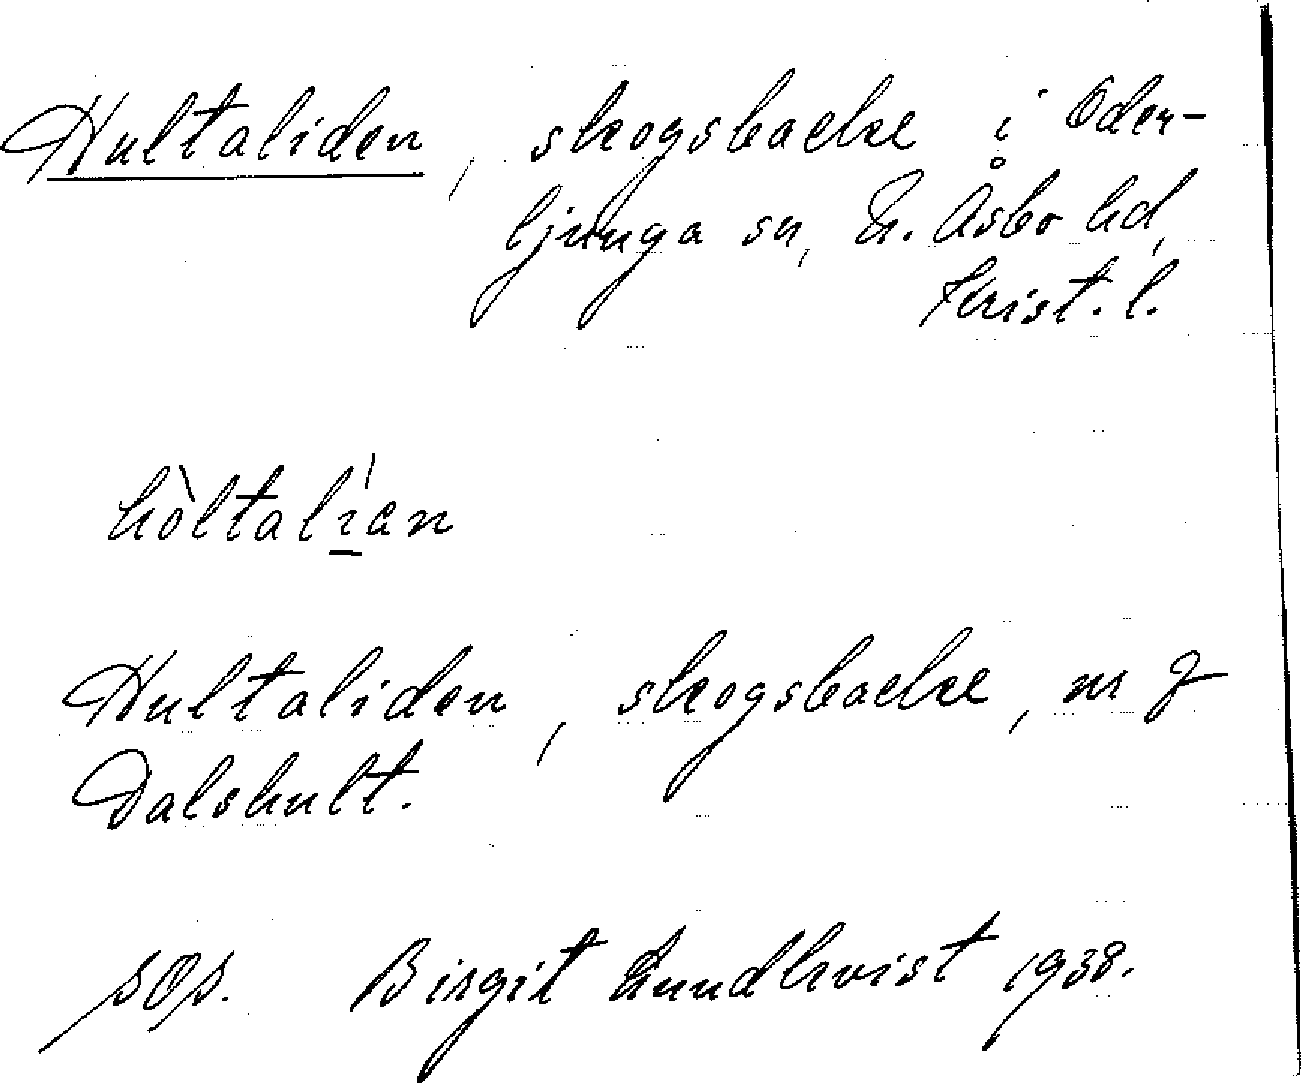 Hultaliden, skogsbacke i Öder-
ljunga sn, N. Åsbo hd,
Krist. l.
hòltalían
Hultaliden, skogsbacke, m g
Dalshult.
Birgit Lundkvist 1938.